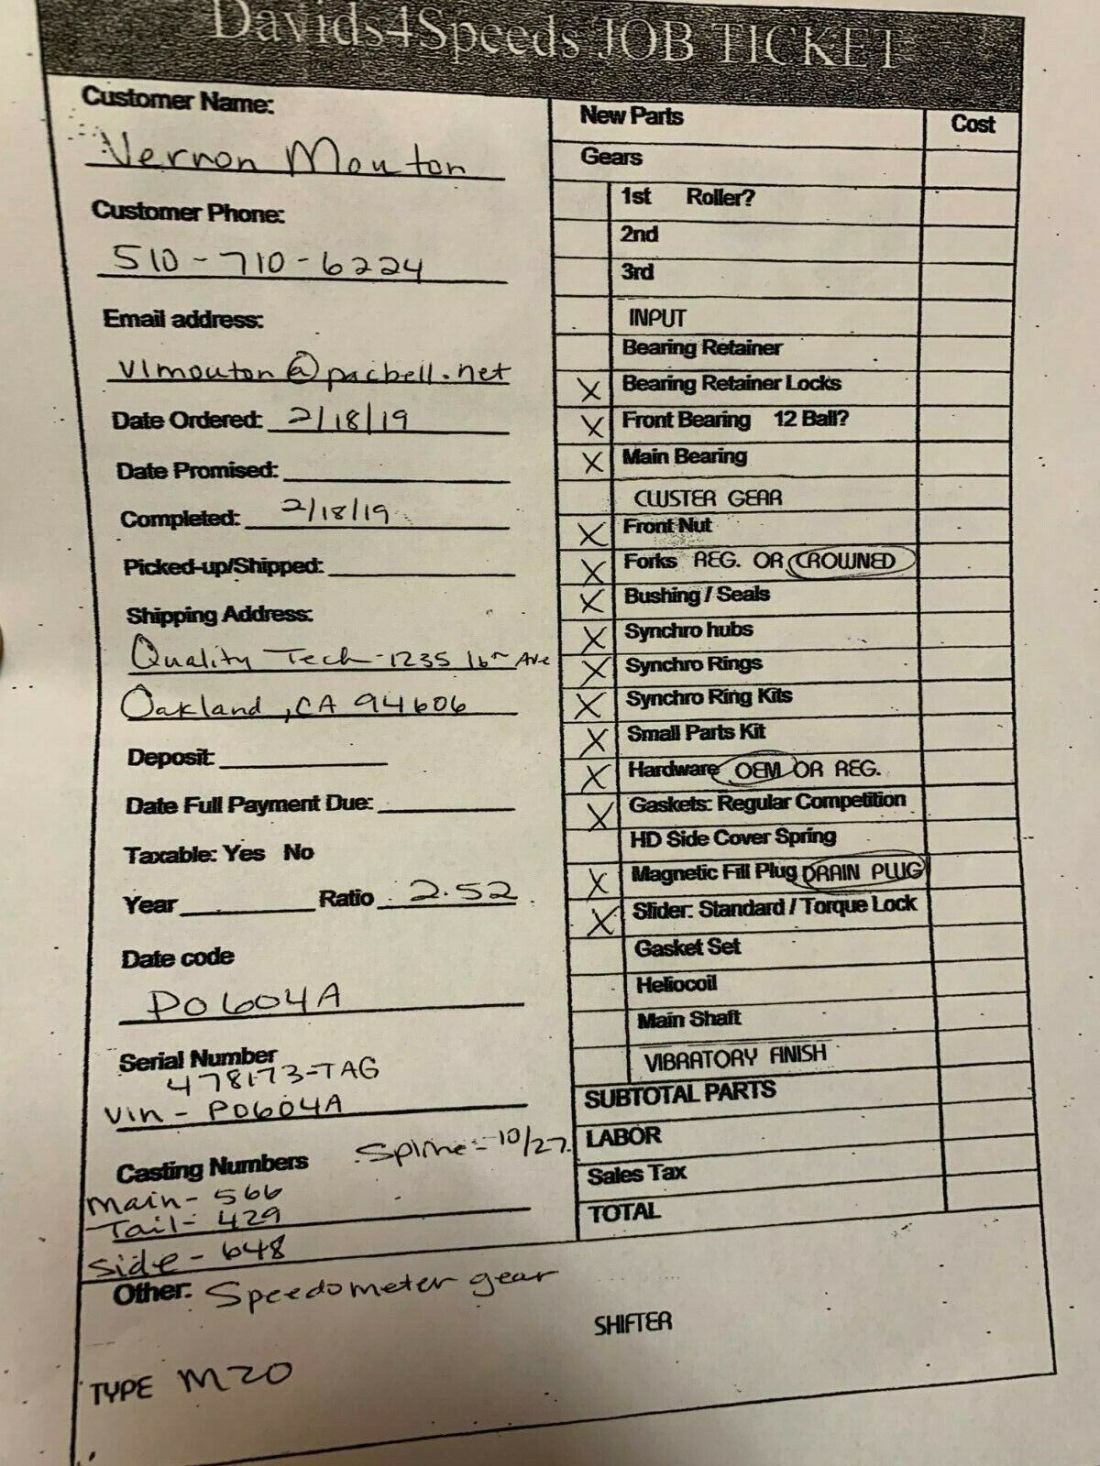 Davids4Speeds JOB TICKET
Customer Name:
Vernon Mouton
Customer Phone:
510-710-6224
Email address:
vlmouton@pacbell.net
Date Ordered: 2/18/19
Date Promised:
Completed: 2/18/19
Picked-up/Shipped:
Shipping Address:
Quality Tech-1235 16th Ave
Oakland, CA 94606
Deposit:
Date Full Payment Due:
Taxable: Yes No
Year Ratio 2.52
Date code
P0604A
Serial Number
478173-TAG
Vin - P0604A
Casting Numbers Spline-10/27
Main- 566
Tail- 429
Side- 648
New Parts Cost
Gears
1st Roller?
2nd
3rd
INPUT
Bearing Retainer
X Bearing Retainer Locks
X Front Bearing 12 Ball?
X Main Bearing
CLUSTER GEAR
X Front Nut
X Forks REG. OR CROWNED
X Bushing / Seals
X Synchro hubs
X Synchro Rings
X Synchro Ring Kits
X Small Parts Kit
X Hardware OEM OR REG.
X Gaskets: Regular Competition
HD Side Cover Spring
X Magnetic Fill Plug DRAIN PLUG
X Slider: Standard / Torque Lock
Gasket Set
Heliocoil
Main Shaft
VIBRATORY FINISH
SUBTOTAL PARTS
LABOR
Sales Tax
TOTAL
Other: Speedometer gear
SHIFTER
TYPE M20